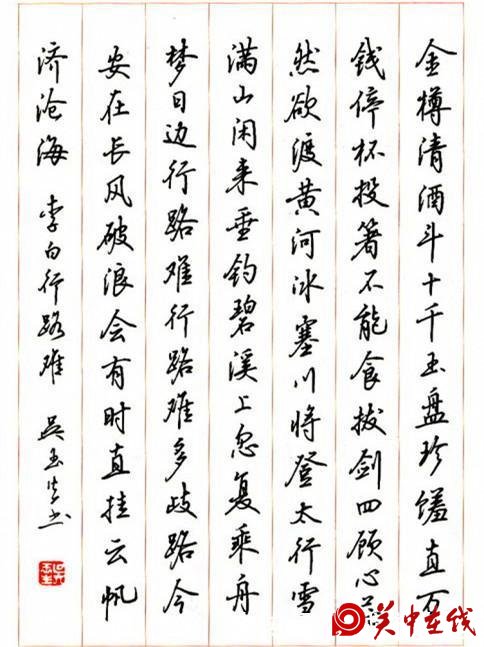 金樽清酒斗十千玉盘珍馐直万
钱停杯投箸不能食拔剑四顾心茫
然欲渡黄河冰塞川将登太行雪
满山闲来垂钓碧溪上忽复乘舟
梦日边行路难行路难多歧路今
安在长风破浪会有时直挂云帆
济沧海 李白行路难 吴玉生书
关中在线